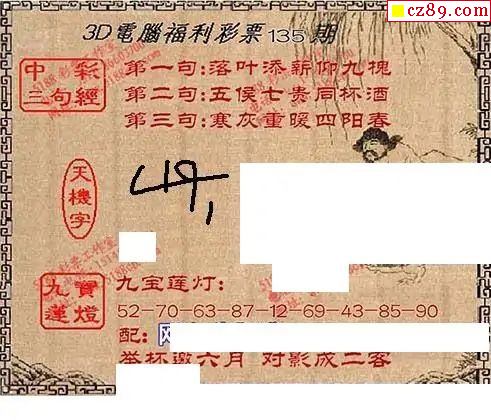 cz89.com
3D電腦福利彩票135期
中彩三句經
第一句:落叶添新仰九槐
第二句:五侯七贵同杯酒
第三句:寒灰重暖四阳春
天機字
九寶蓮燈
九宝莲灯:
52-70-63-87-12-69-43-85-90
配:
举杯邀六月 对影成二客